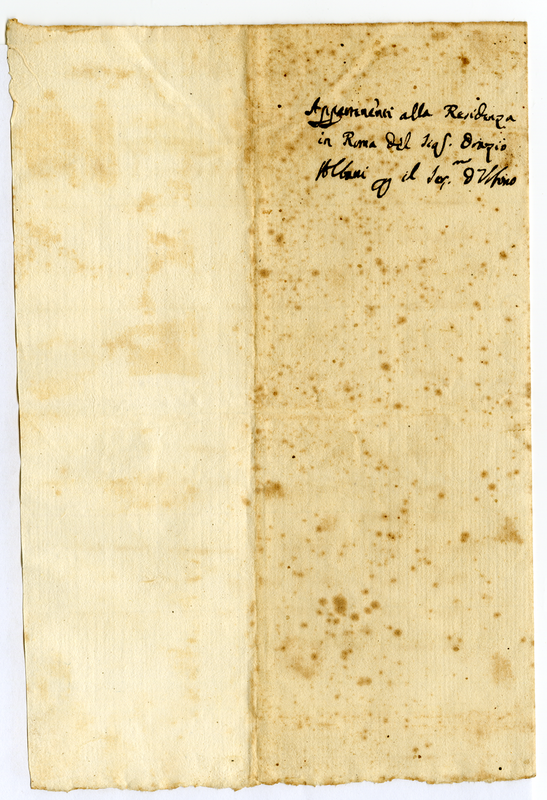 Appartenenti alla Residenza
in Roma del Sigr. Orazio
Albani pp il Ser.mo d'Urbino